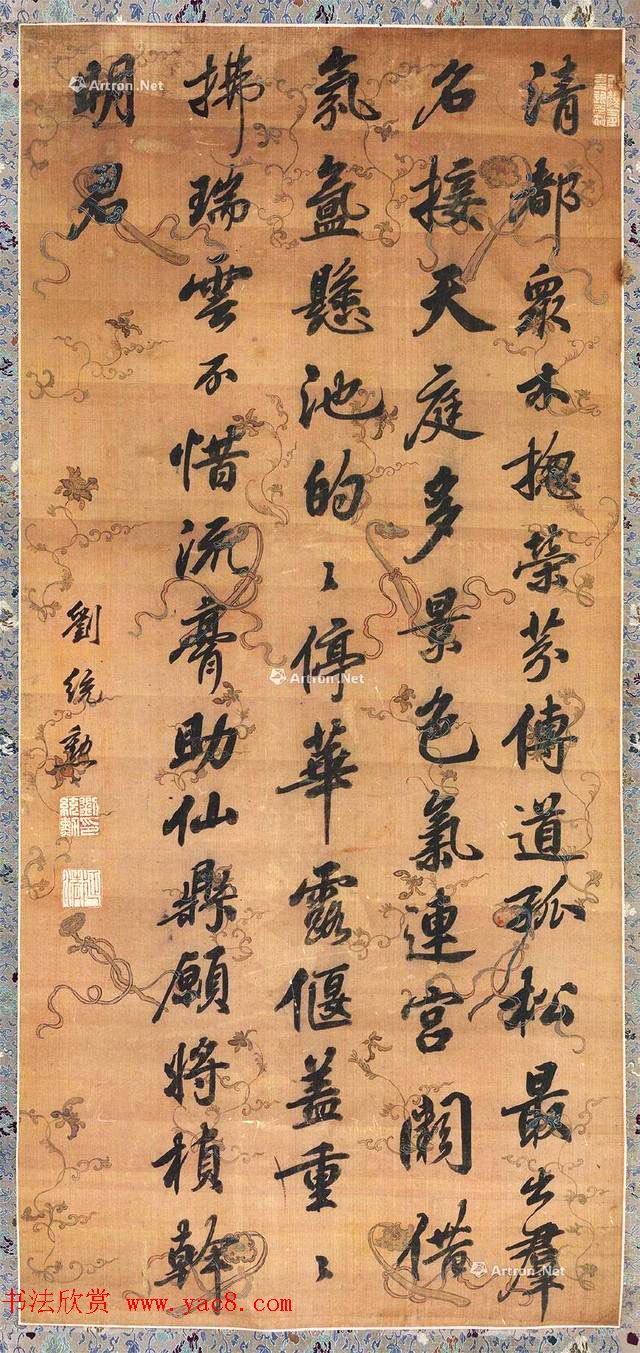 清都眾木揔榮芬傳道孤松最出羣
名接天庭多景色氣連宮闕借
氛氳懸池的〻停華露偃盖重〻
拂瑞雲不惜流膏助仙鼎願將楨幹
明君
劉統勲
劉印統勳
Artron.Net
Artron.Net
Artron.Net
Artron.Net
书法欣赏 www.yac8.com